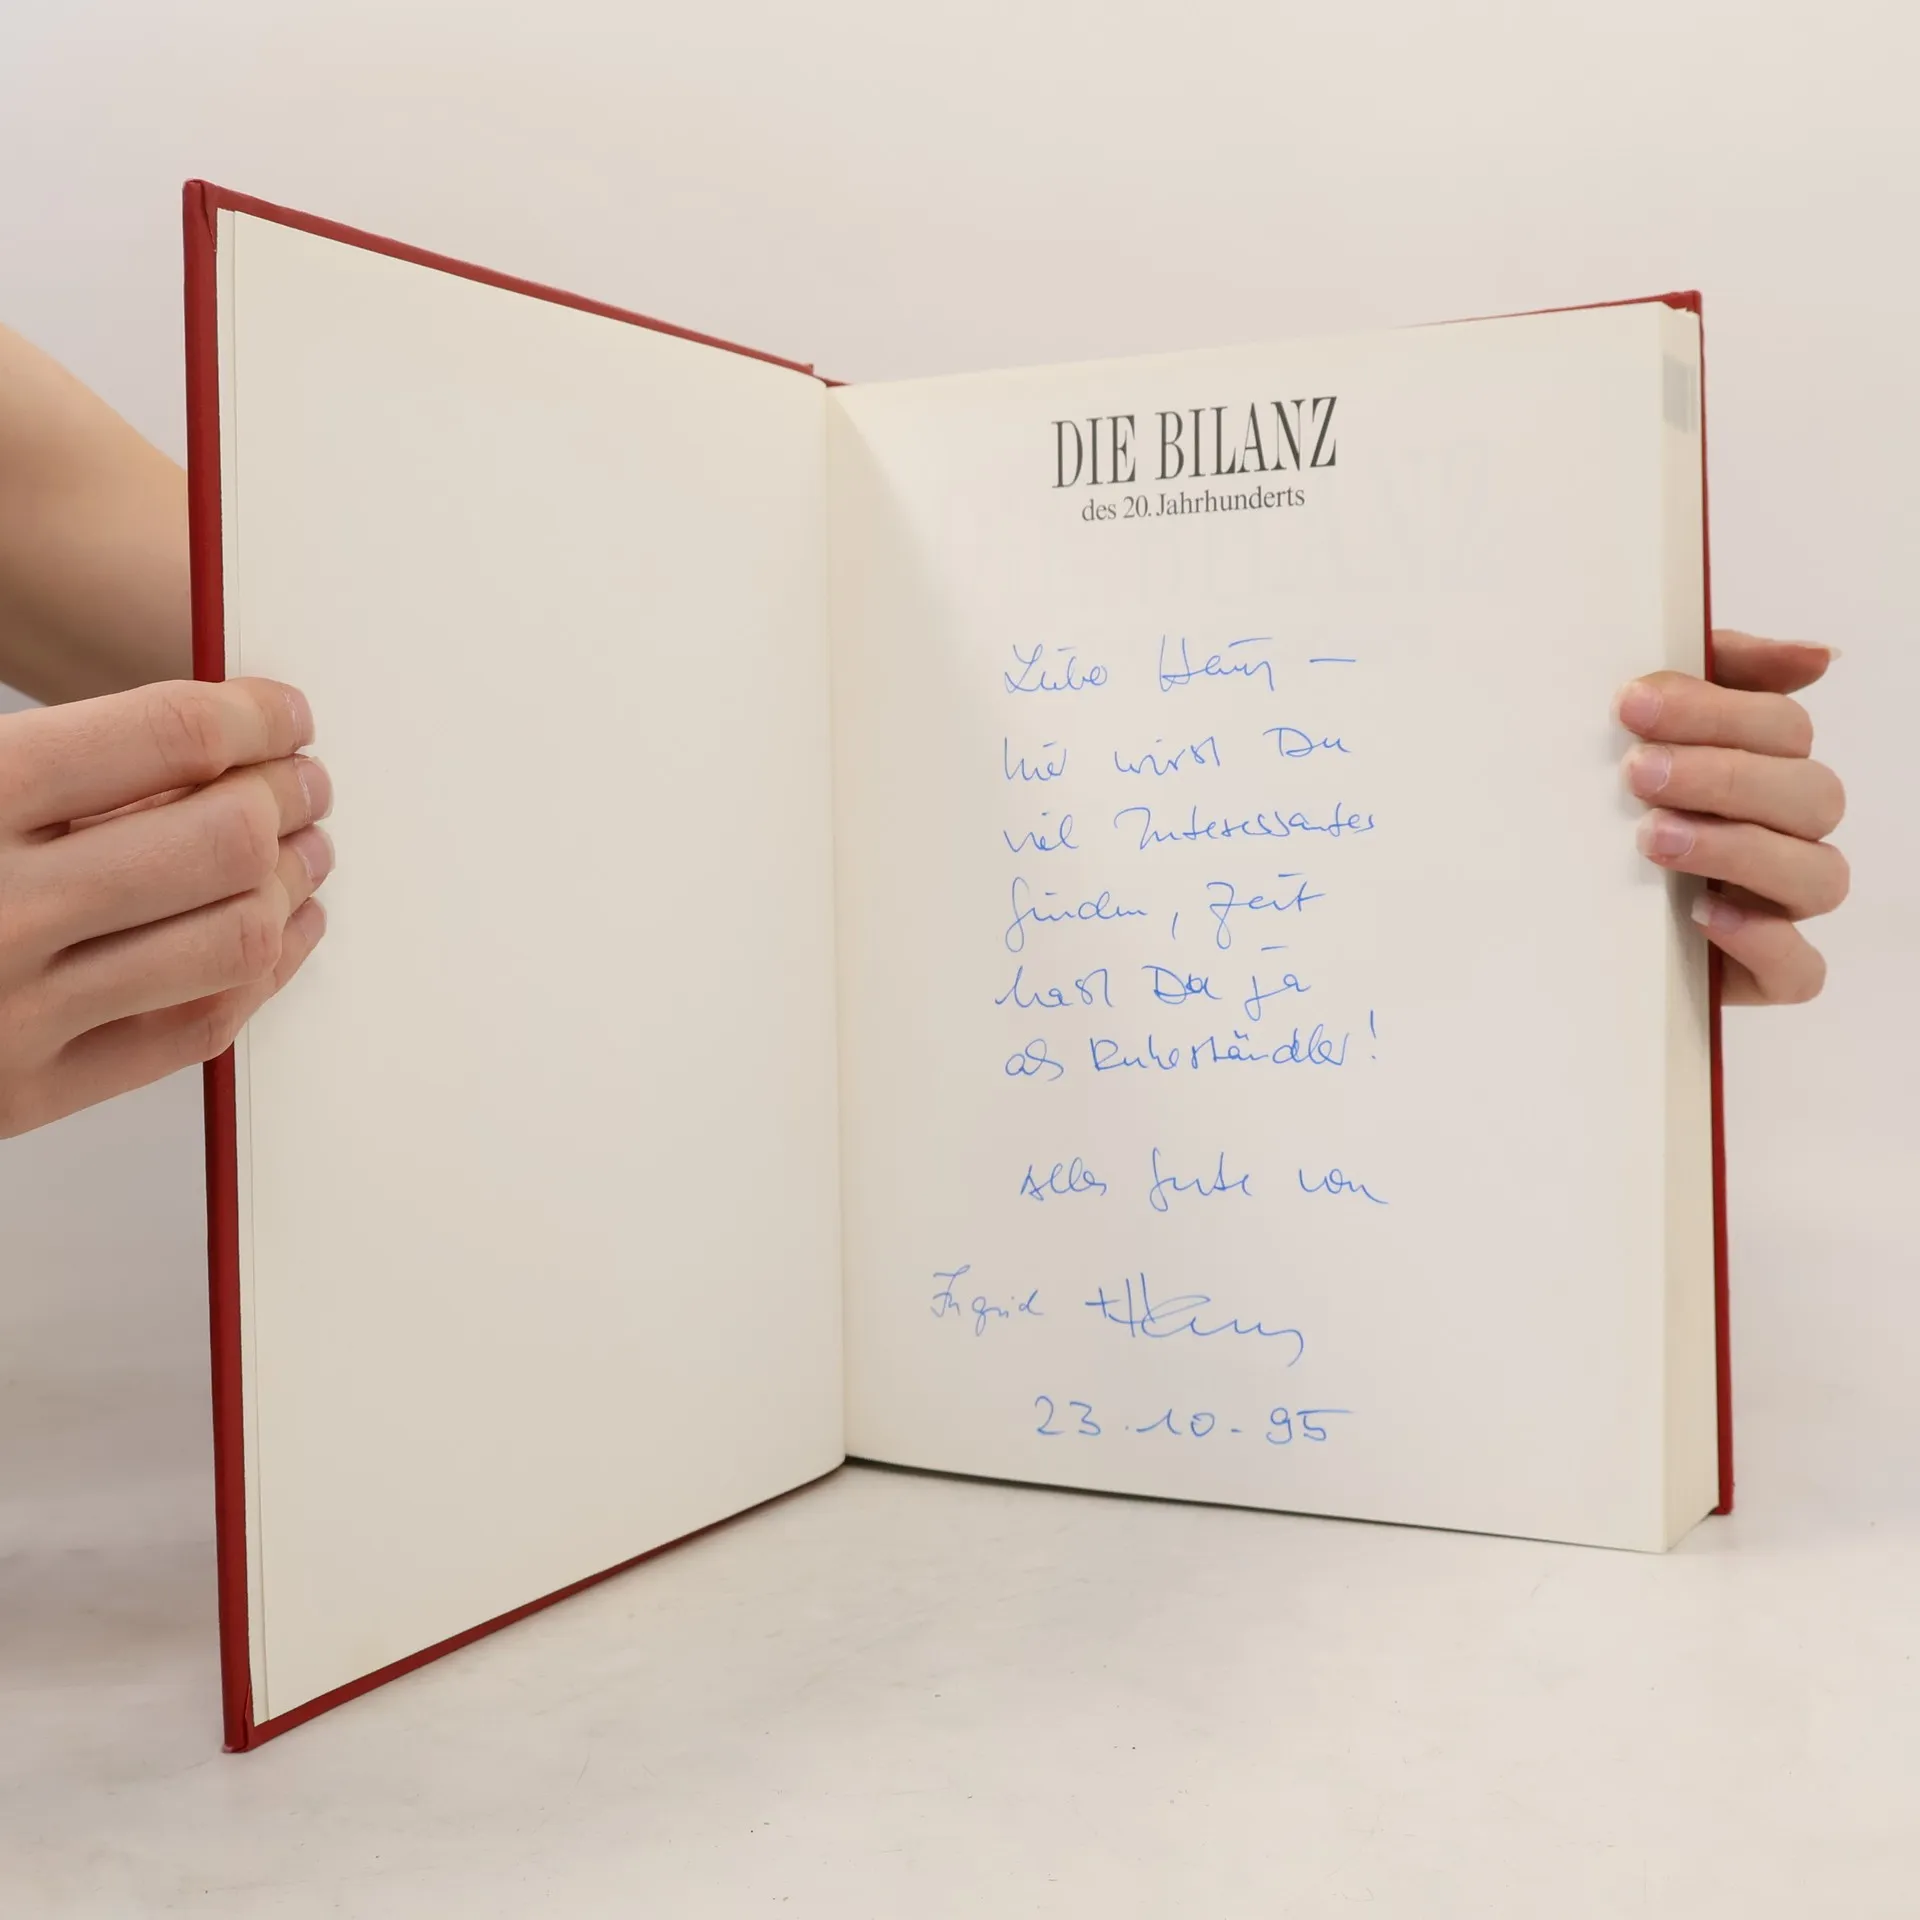 DIE BILANZ
des 20. Jahrhunderts
Lieber Heinz —
hier wirst Du
viel Interessantes
finden, Zeit
hast Du ja
als Ruheständler!
Alles Gute von
Ingrid +
23.10.95